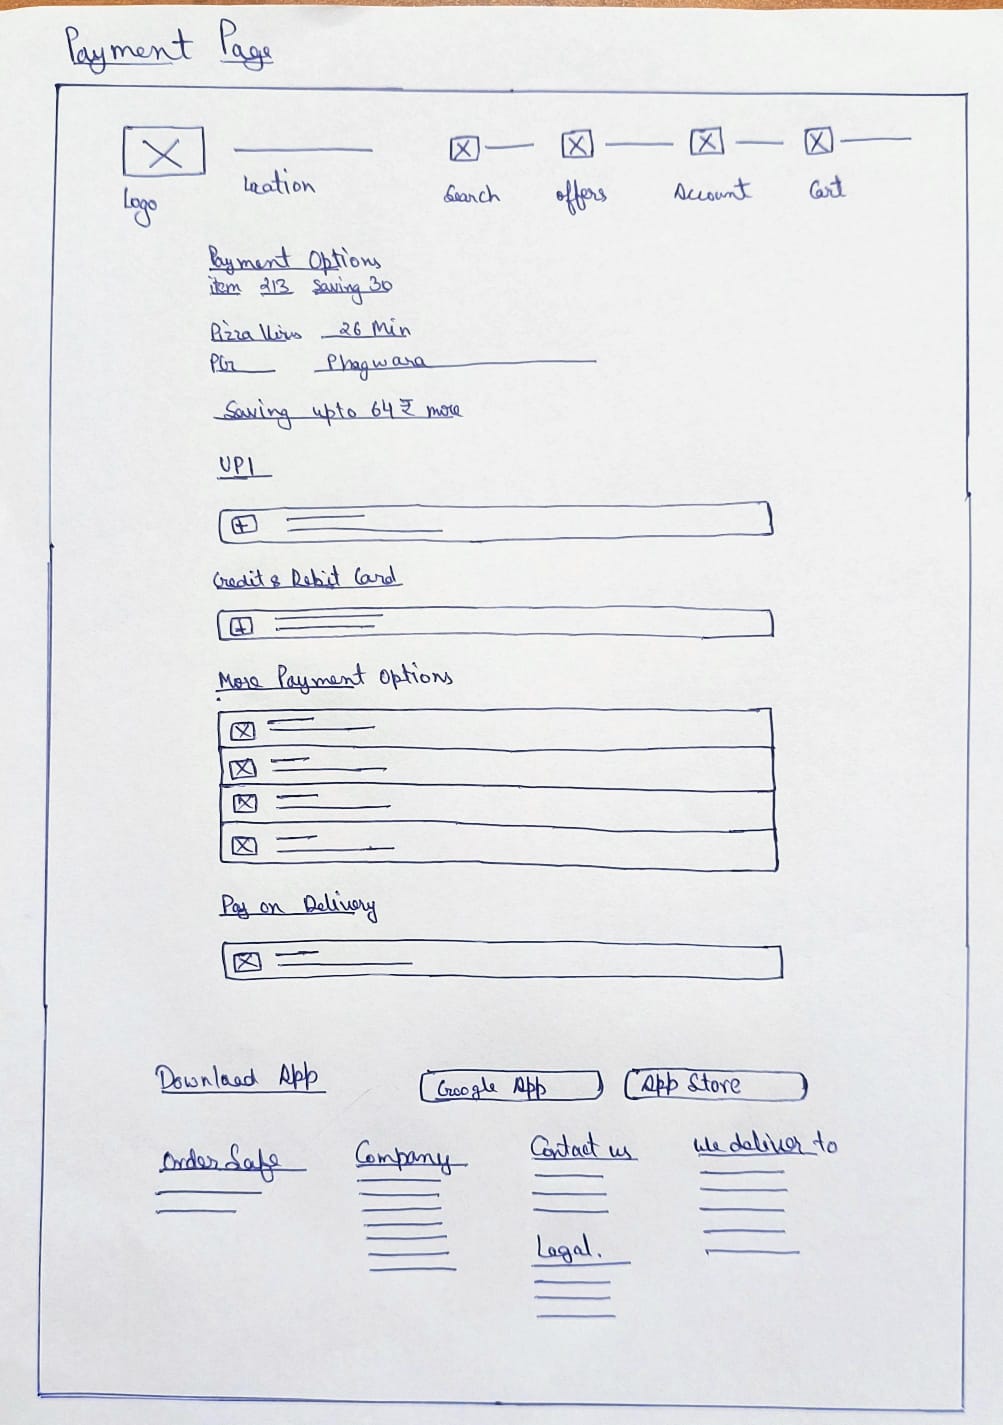 Payment Page
Logo
Location
Search
offers
Account
Cart
Payment Options
item 213 Saving 30
Pizza 26 Min
PG Phagwara
Saving upto 64 ₹ more
UPI
Credit & Debit Card
More Payment Options
Pay on Delivery
Download App
Google App
App Store
Order Safe
Company
Contact us
We deliver to
Legal.